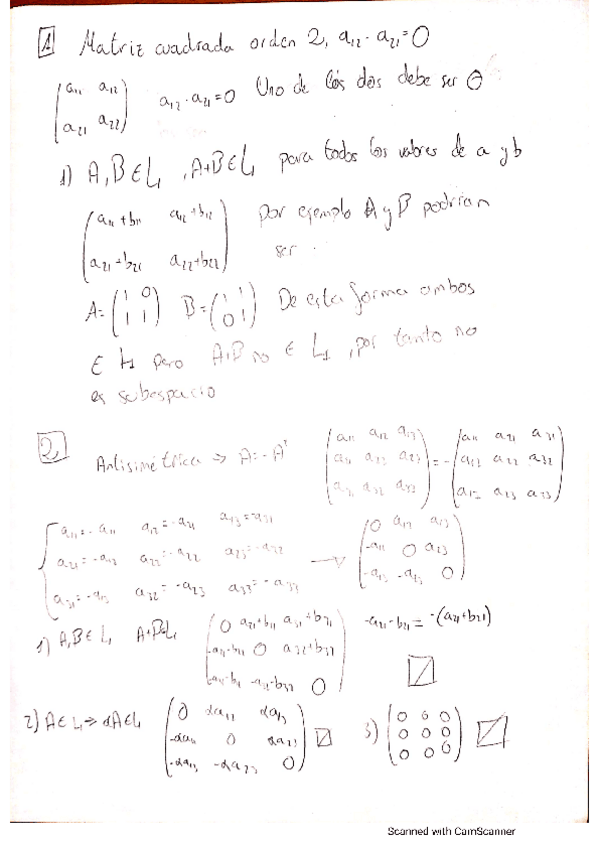 1 Matriz cuadrada orden 2, a12 · a21 = 0
(a11 a12
a21 a22) a12 · a21 = 0 Uno de los dos debe ser 0
1) A, B ∈ L, A+B ∈ L para todos los valores de a y b
(a11 + b11 a12 + b12
a21 + b21 a22 + b22) Por ejemplo A y B podrían
ser
A = (1 0
1 1) B = (1 1
0 1) De esta forma ambos
∈ L1 pero A+B no ∈ L1, por tanto no
es subespacio
2. Antisimétrica ⇒ A = -A^T
(a11 a12 a13
a21 a22 a23
a31 a32 a33) = -(a11 a21 a31
a12 a22 a32
a13 a23 a33)
a11 = -a11 a12 = -a21 a13 = -a31
a21 = -a12 a22 = -a22 a23 = -a32
a31 = -a13 a32 = -a23 a33 = -a33
→ (0 a12 a13
0 a23
-a13 -a23 0)
1) A, B ∈ L, A+B ∈ L
(0 a21+b21 a31+b31
0 a32+b32
0) -a21 - b21 = -(a21+b21)
2) A ∈ L ⇒ αA ∈ L
(0 αa12 αa13
0 αa23
-αa13 -αa23 0)
3) (0 0 0
0 0 0
0 0 0)
Scanned with CamScanner